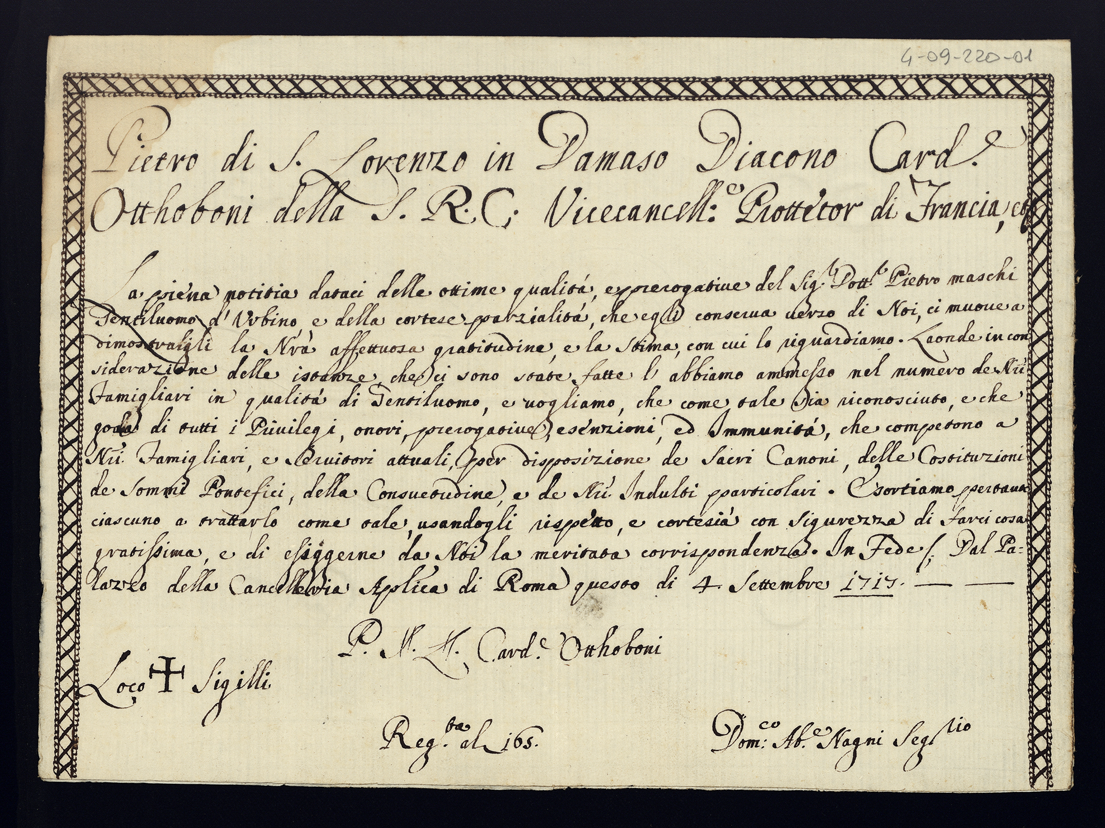 4-09-220-01
Pietro di S. Lorenzo in Damaso Diacono Card.e
Otthoboni della S. R. C: Vicecancell:e Prottetor di Francia, etc
La piena notitia dataci delle ottime qualitá, e prerogative del Sig.r Dott.r Pietro maschi
Gentiluomo d'Urbino, e della cortese parzialitá, che egli conserva verzo di Noi, ci muove a
dimostrargli la Nra affettuosa gratitudine, e la stima, con cui lo riguardiamo. Laonde in con
siderazione delle istanze, che ci sono state fatte l'abbiamo ammesso nel numero de Nri
Famigliari in qualitá di Gentiluomo, e vogliamo, che come tale sia riconosciuto, e che
goda di tutti i Privilegi, onori, prerogative, esenzioni, ed Immunitá, che competono a
Nri Famigliari, e Servitori attuali, per disposizione de Sacri Canoni, delle Costituzioni
de Sommi Pontefici, della Consuetudine, e de Nri Indulti particolari. Esortiamo pertanto
ciascuno a trattarlo come tale, usandogli rispetto, e cortesia con sigurezza di farci cosa
gratissima, e di esiggerne da Noi la meritata corrispondenza. In Fede /: Dal Pa:
lazzo della Cancelleria Aplica di Roma questo di 4 Settembre 1717. — —
P. Card.e Otthoboni
Loco + Sigilli
Reg.ta al 165.
Dom:co Ab.e Nagni Seg.rio